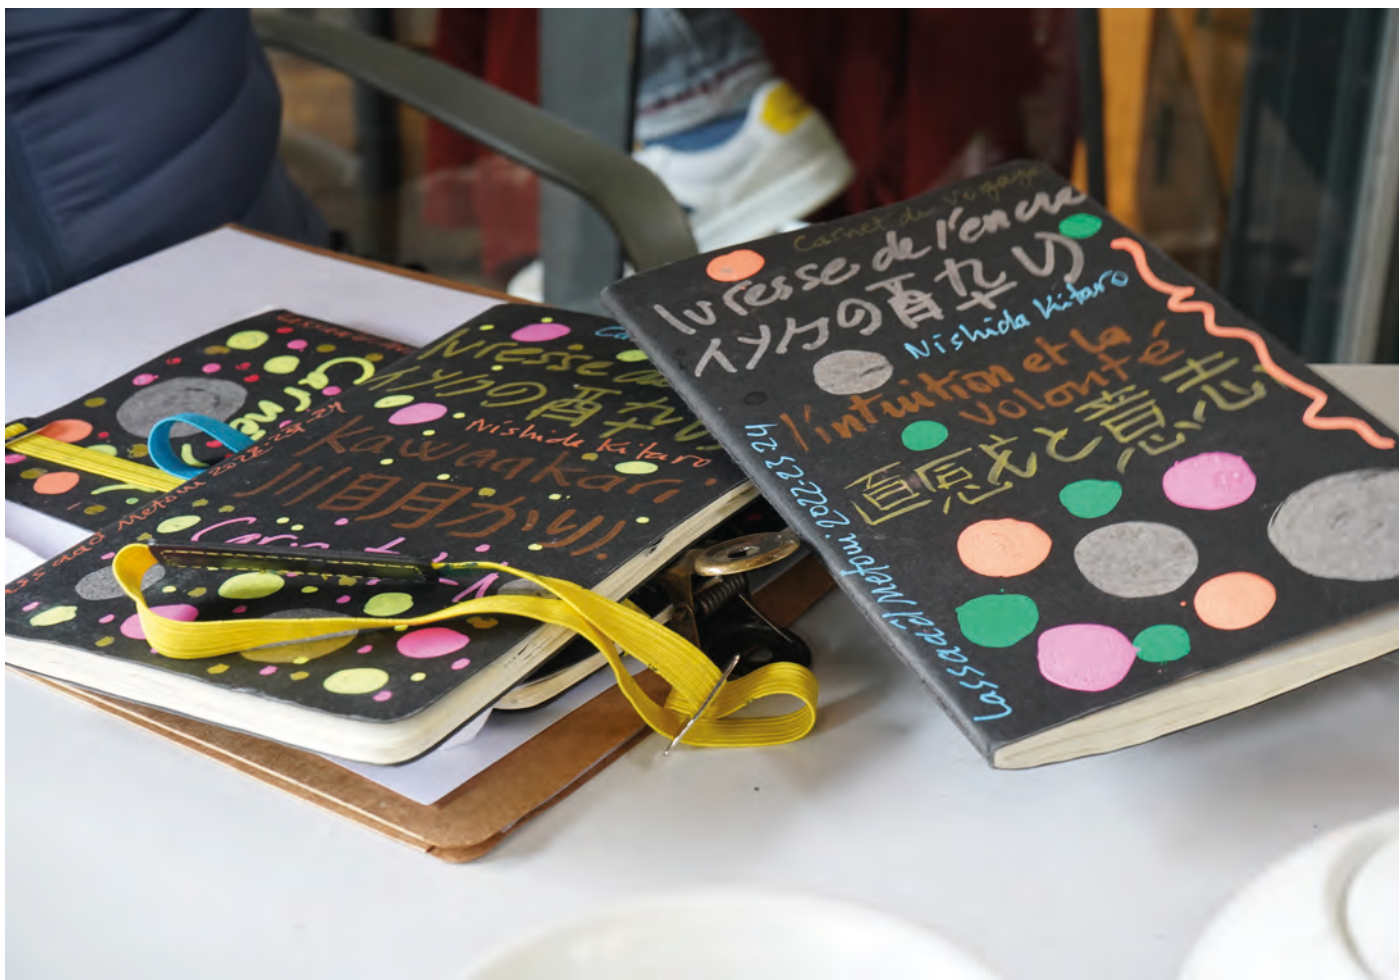 Carnet de Voyage
Ivresse de l'encre
インクの酔い
Nishida Kitaro
l'intuition et la
volonté
直感と意志
Lassaad Metoui 2022-23-24
Ivresse de
インクの酔い
Nishida Kitaro
Kawaakari
川明かり
Metoui 2022-23-24
Carne